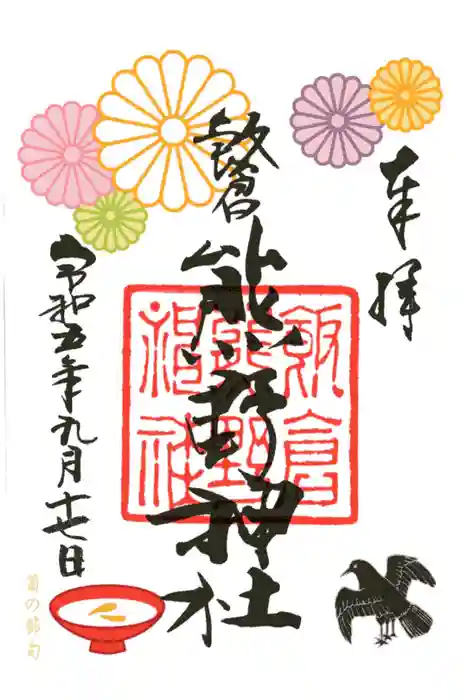 奉拝
飯倉
熊野神社
飯倉
熊野
神社
令和五年九月十七日
菊の節句